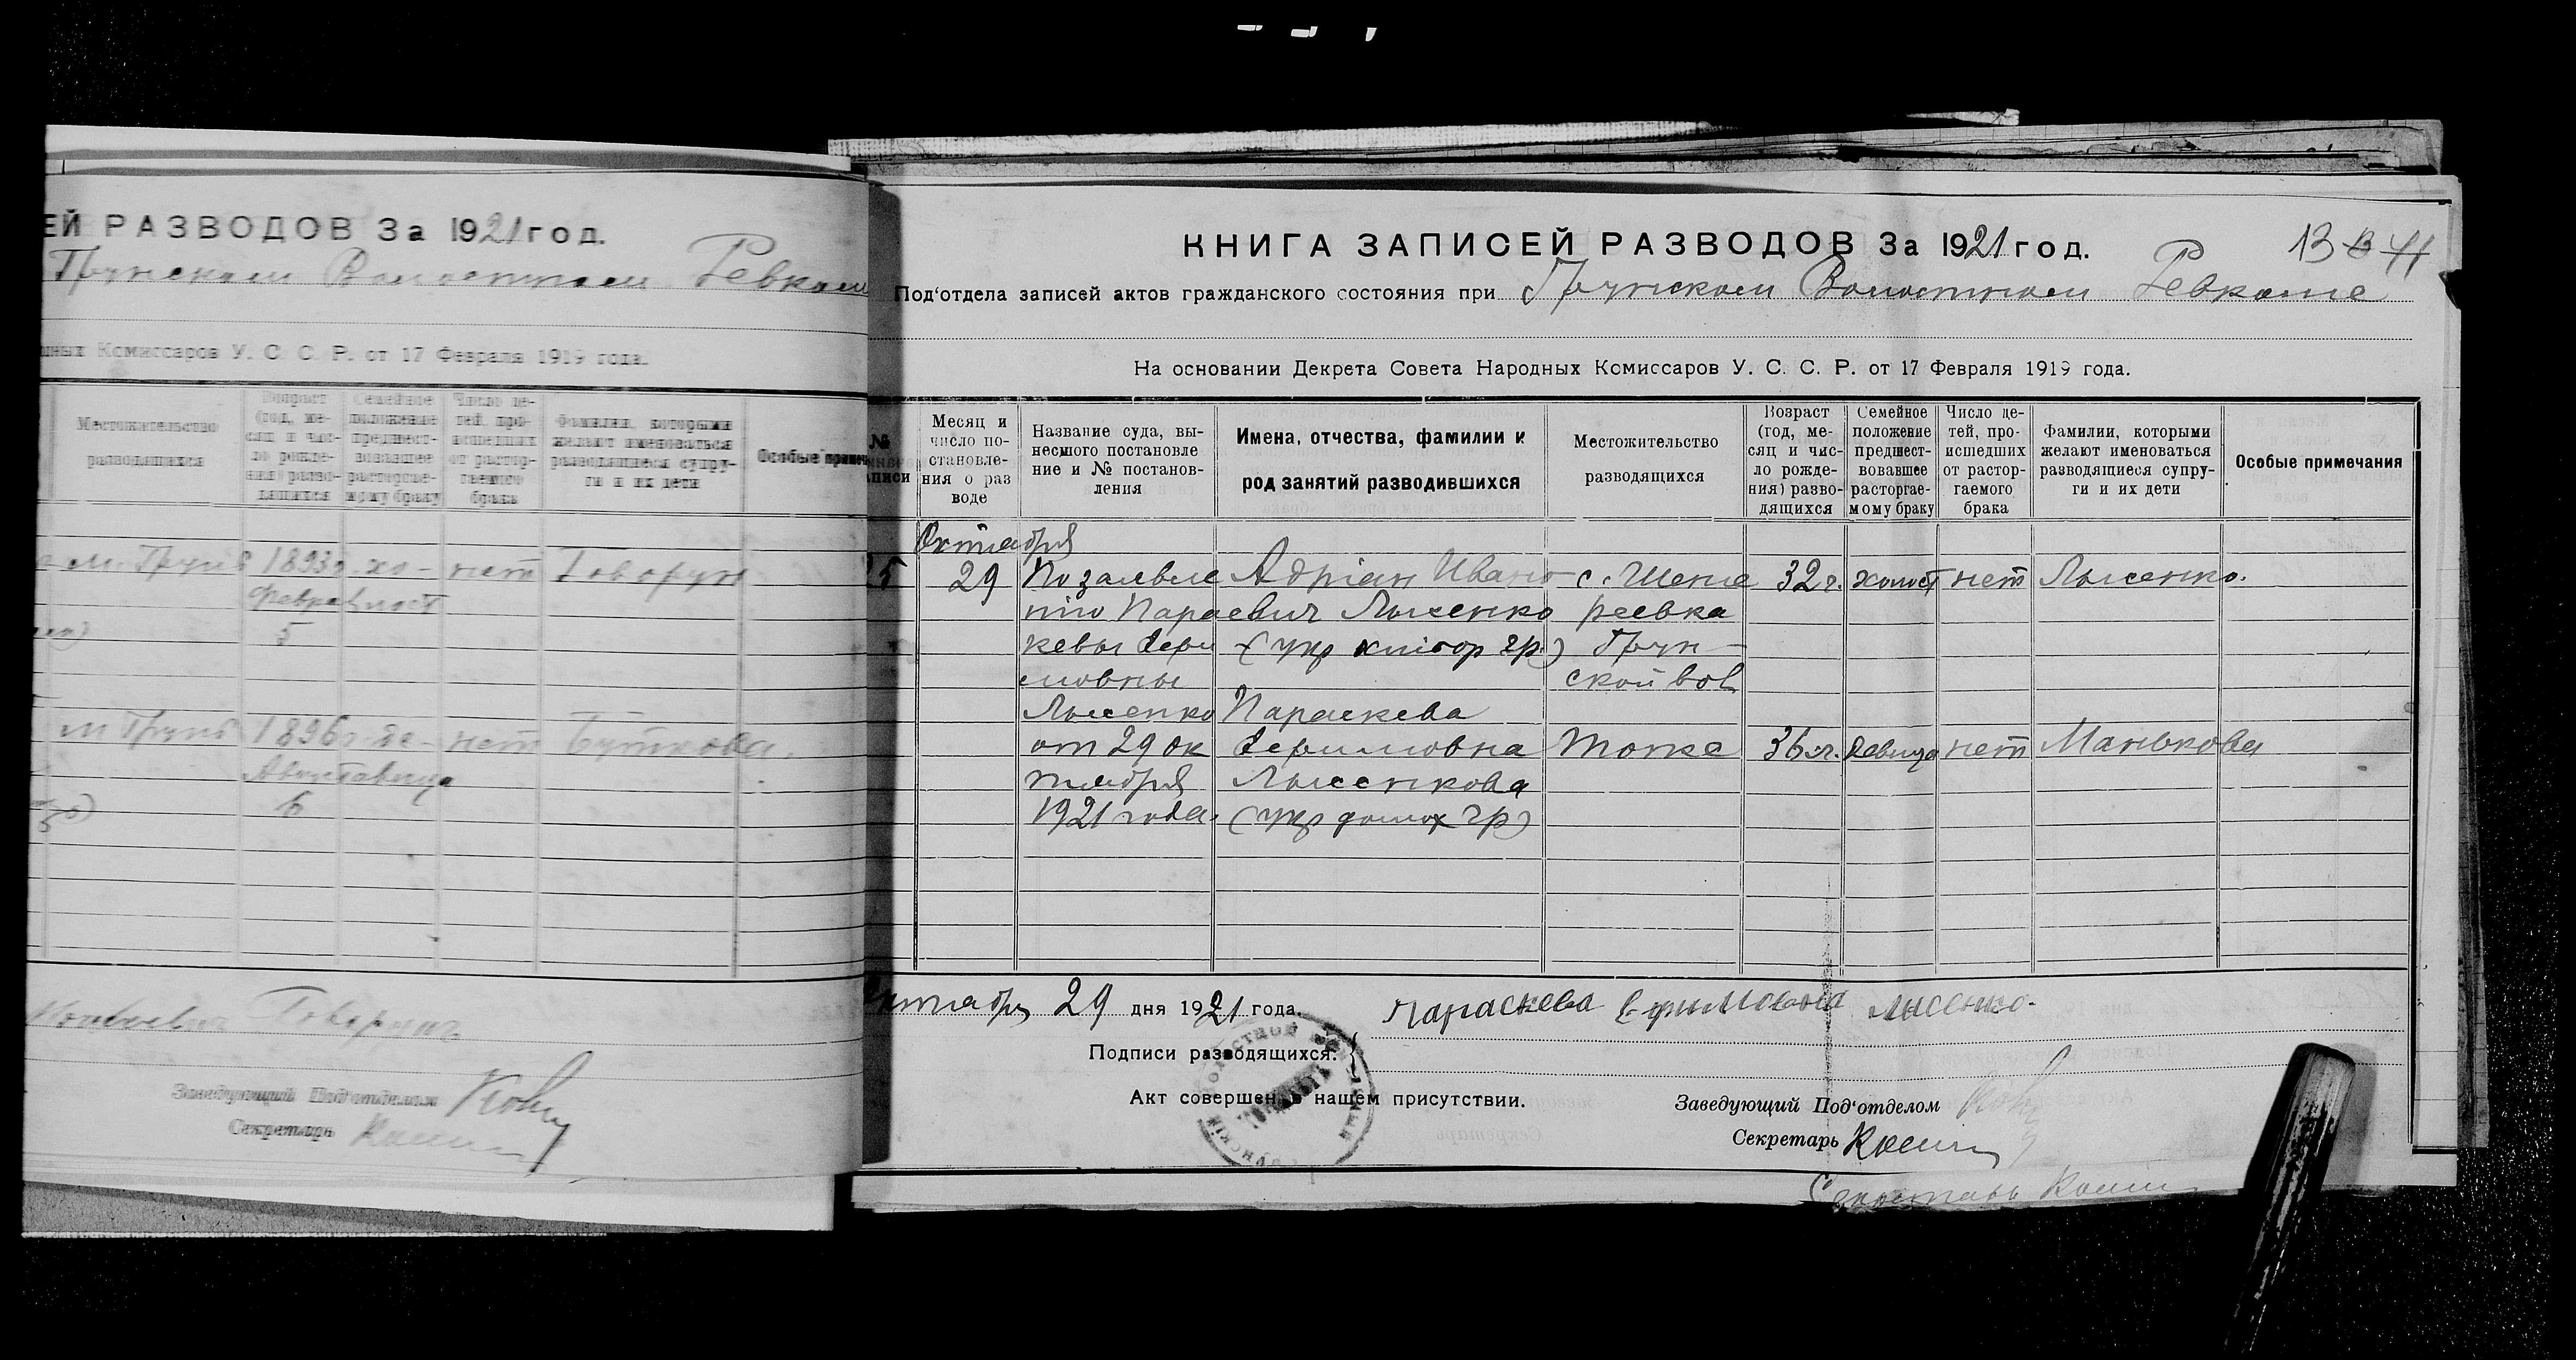 ЕЙ РАЗВОДОВ За 1921 год.
Грунском Волостном Ревком
нных Комиссаров У. С. С. Р. от 17 Февраля 1919 года.
Местожительство
разводящихся
Возраст
(год, ме-
сяц и чис-
ло рожде-
ния) разво-
дящихся
Семейное
положение
предшест-
вовавшее
расторгае-
мому браку
Число де-
тей, про-
исшедших
от растор-
гаемого
брака
Фамилии, которыми
желают именоваться
разводящиеся супру-
ги и их дети
Особые примеч
м. Грунь 1893г. хо- нет Говорун
Февра лост
5
м Грунь 1896г. де- нет Буткова.
Августа вица
6
Говорун
Заведующий Под‘отделом
Секретарь
КНИГА ЗАПИСЕЙ РАЗВОДОВ За 1921 год.
13
Под‘отдела записей актов гражданского состояния при Грунском Волостном Ревкоме
На основании Декрета Совета Народных Комиссаров У. С. С. Р. от 17 Февраля 1919 года.
№
записи
Месяц и
число по-
становле-
ния о раз
воде
Название суда, вы-
несшого постановле
ние и № постанов-
ления
Имена, отчества, фамилии и
род занятий разводившихся
Местожительство
разводящихся
Возраст
(год, ме-
сяц и чис-
ло рожде-
ния) разво-
дящихся
Семейное
положение
предшест-
вовавшее
расторгае-
мому браку
Число де-
тей, про-
исшедших
от растор-
гаемого
брака
Фамилии, которыми
желают именоваться
разводящиеся супру-
ги и их дети
Особые примечания
Октября
29 По заявле Адріан Ивано- с. Шеме 32 г. холост нет Лысенко.
нию Парас евич Лысенко реевка
кевы Ефи (укр хлібор гр) Грун-
мовны ской вол
Лысенко Параскева
от 29 ок Ефимовна Тоже 36 л. девица нет Манькова
тября Лысенкова
1921 года. (укр домох гр)
Октября 29 дня 1921 года.
Параскева Ефимовна Лысенко.
Подписи разводящихся:
Акт совершен в нашем присутствии.
Заведующий Под‘отделом
Секретарь
Секретарь